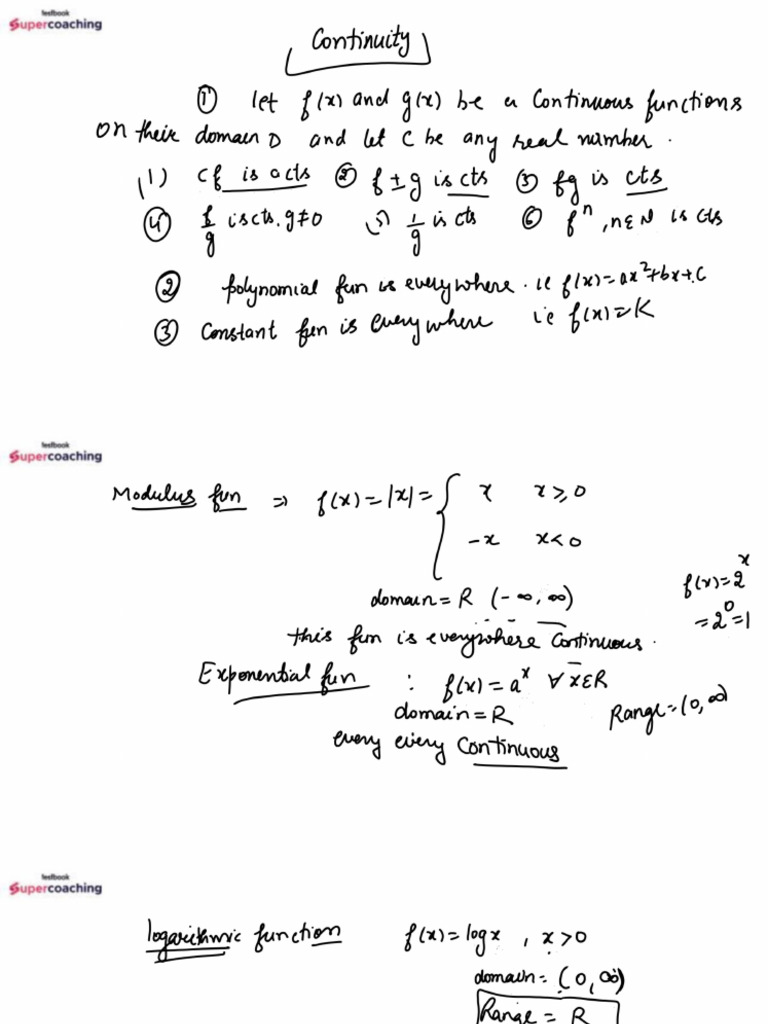 testbook
Supercoaching
Continuity
① let f(x) and g(x) be a continuous functions
on their domain D and let c be any real number.
(1) cf is a cts ② f±g is cts ③ fg is cts
④ f/g is cts. g≠0 5) 1/g is cts ⑥ fⁿ, n∈N is cts
② polynomial fun is everywhere. ie f(x)=ax²+bx+c
③ Constant fun is everywhere ie f(x)=K
testbook
Supercoaching
Modulus fun ⇒ f(x)=|x|= { x x≥0
-x x<0
domain=R (-∞,∞)
f(x)=2ˣ
=2⁰=1
this fun is everywhere continuous.
Exponential fun : f(x)=aˣ ∀ x∈R
domain=R
Range=(0,∞)
every every Continuous
testbook
Supercoaching
logarithmic function f(x)=log x , x>0
domain= (0,∞)
Range = R